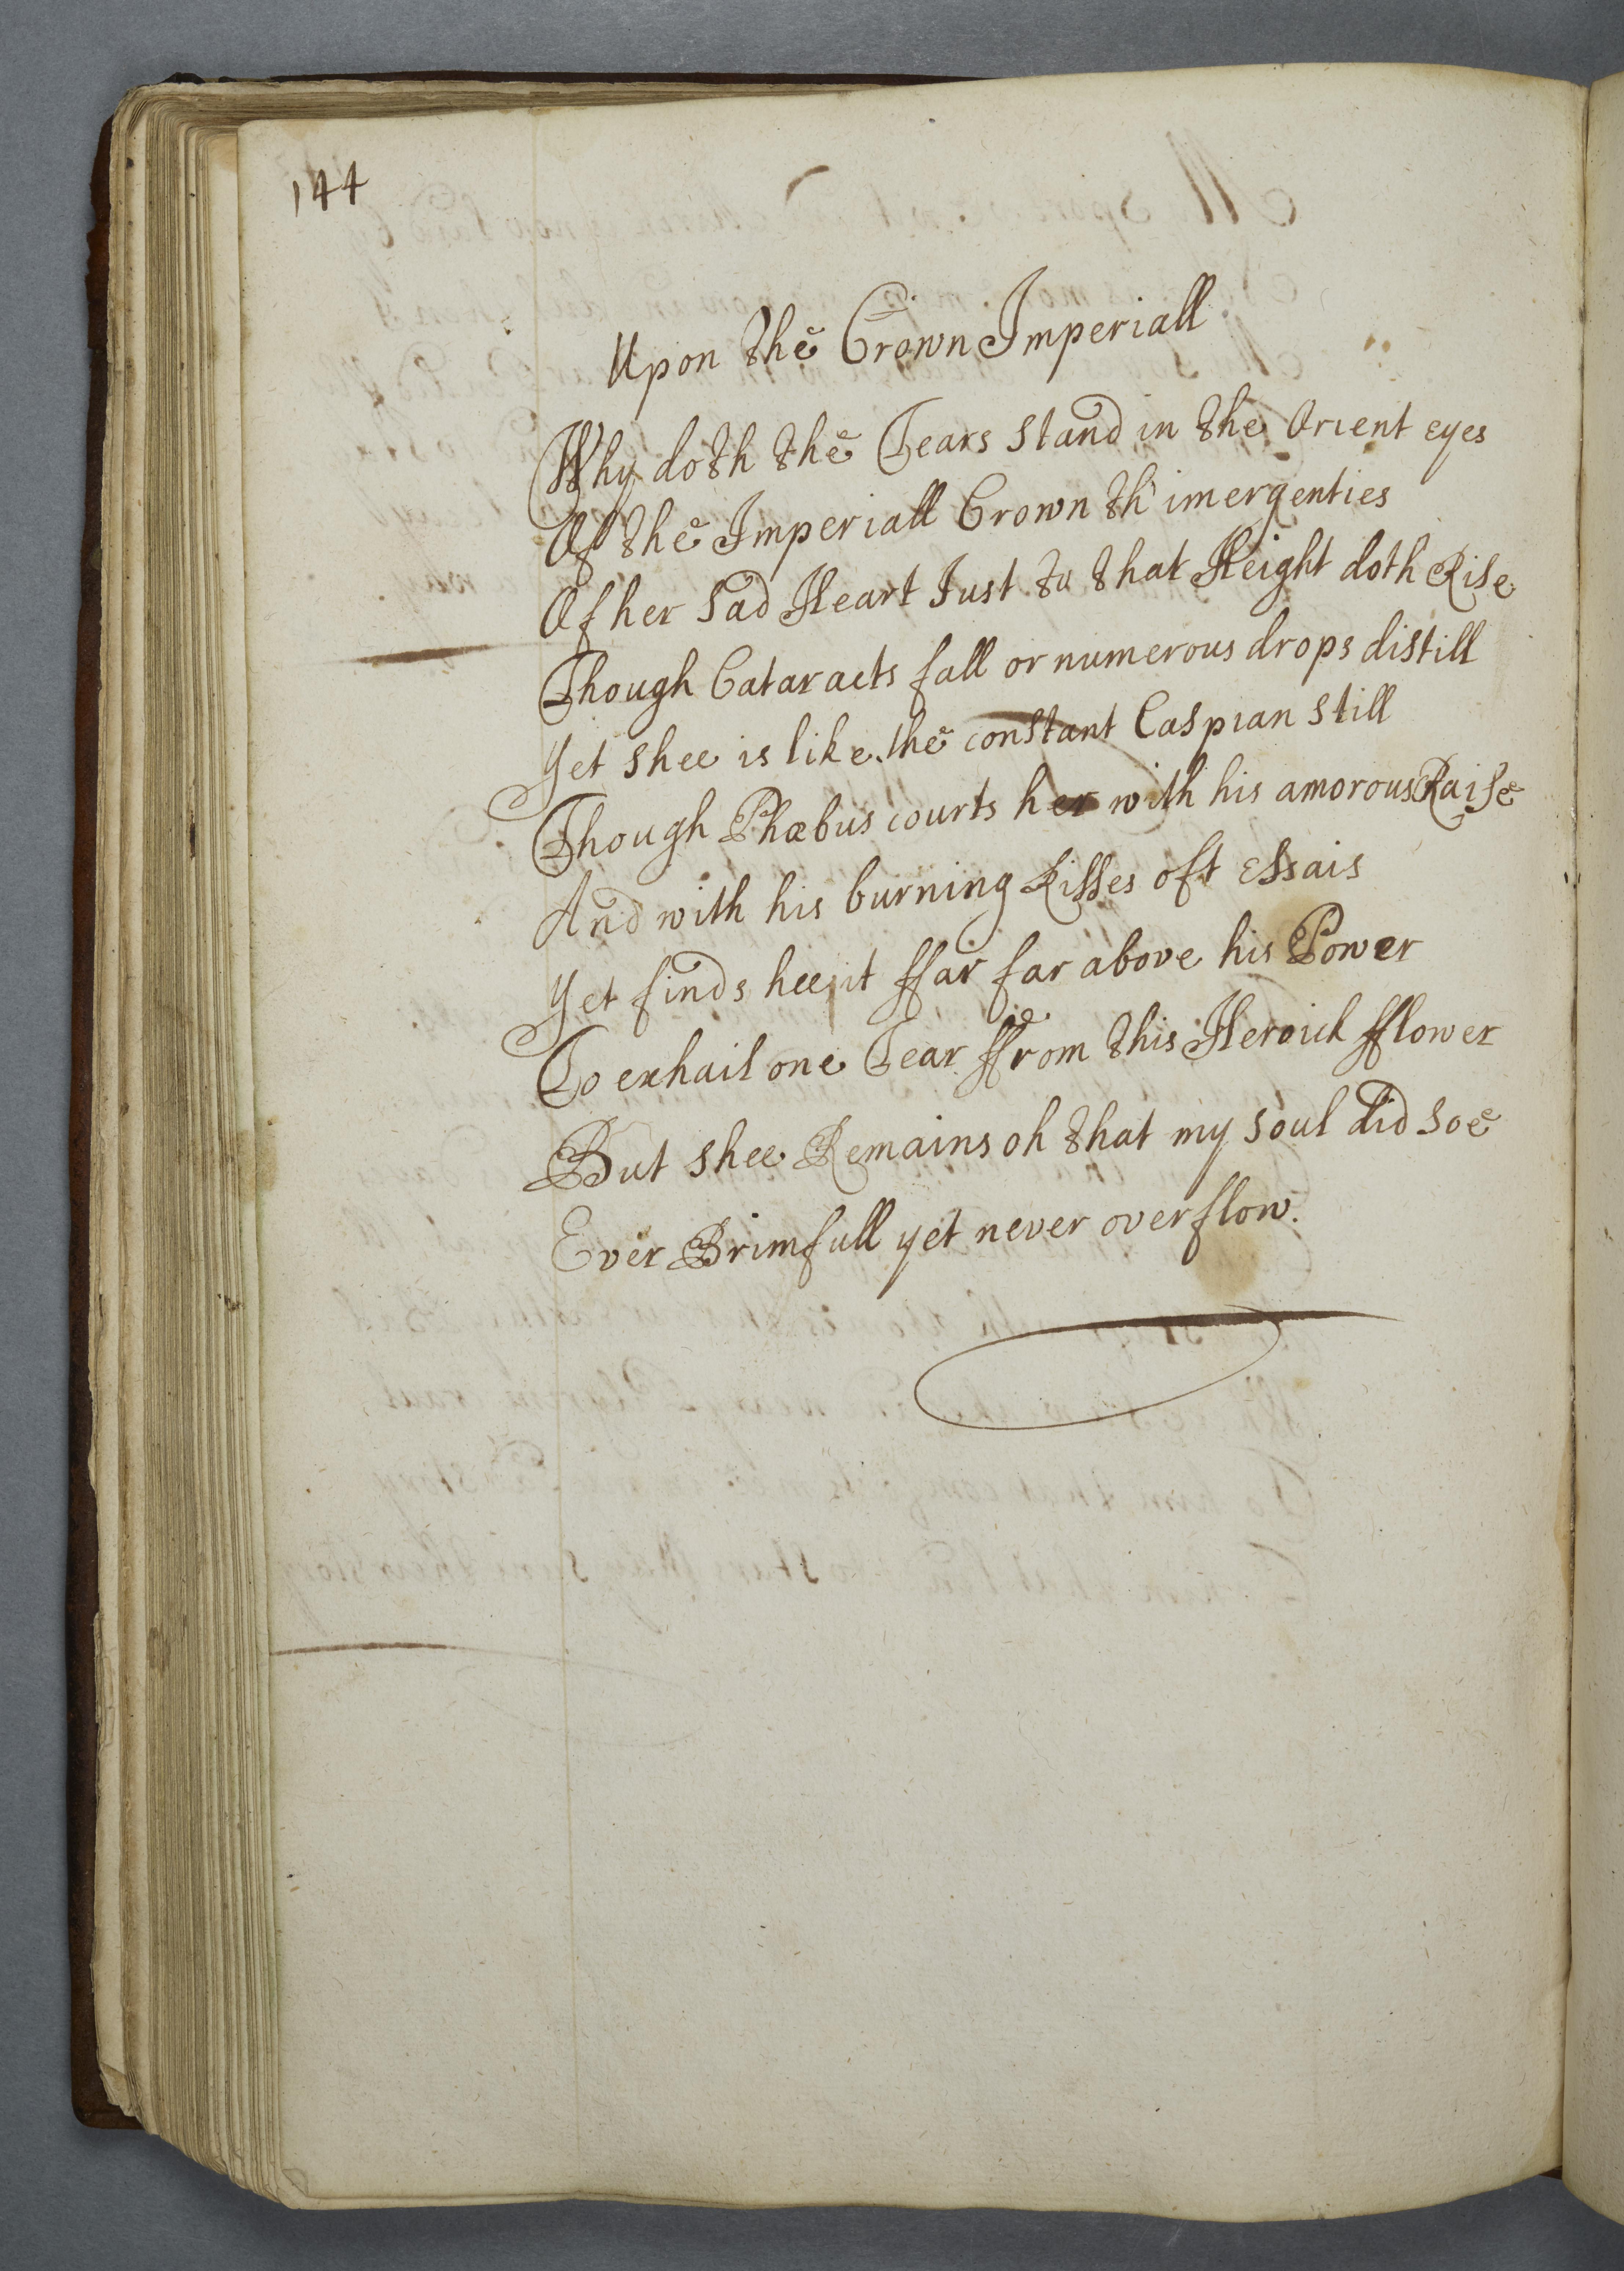 144
Upon the Crown Imperiall
Why doth the Tears stand in the Orient eyes
Of the Imperiall Crown th' imergenties
Of her sad Heart Just to that Height doth Rise
Though Cataracts fall or numerous drops distill
Yet shee is like the constant Caspian still
Though Phœbus courts her with his amorous Raise
And with his burning Kisses oft essais
Yet finds hee it ffar far above his Power
To exhail one Tear ffrom this Heroick fflower
But shee Remains oh that my soul did soe
Ever Brimfull yet never overflow.